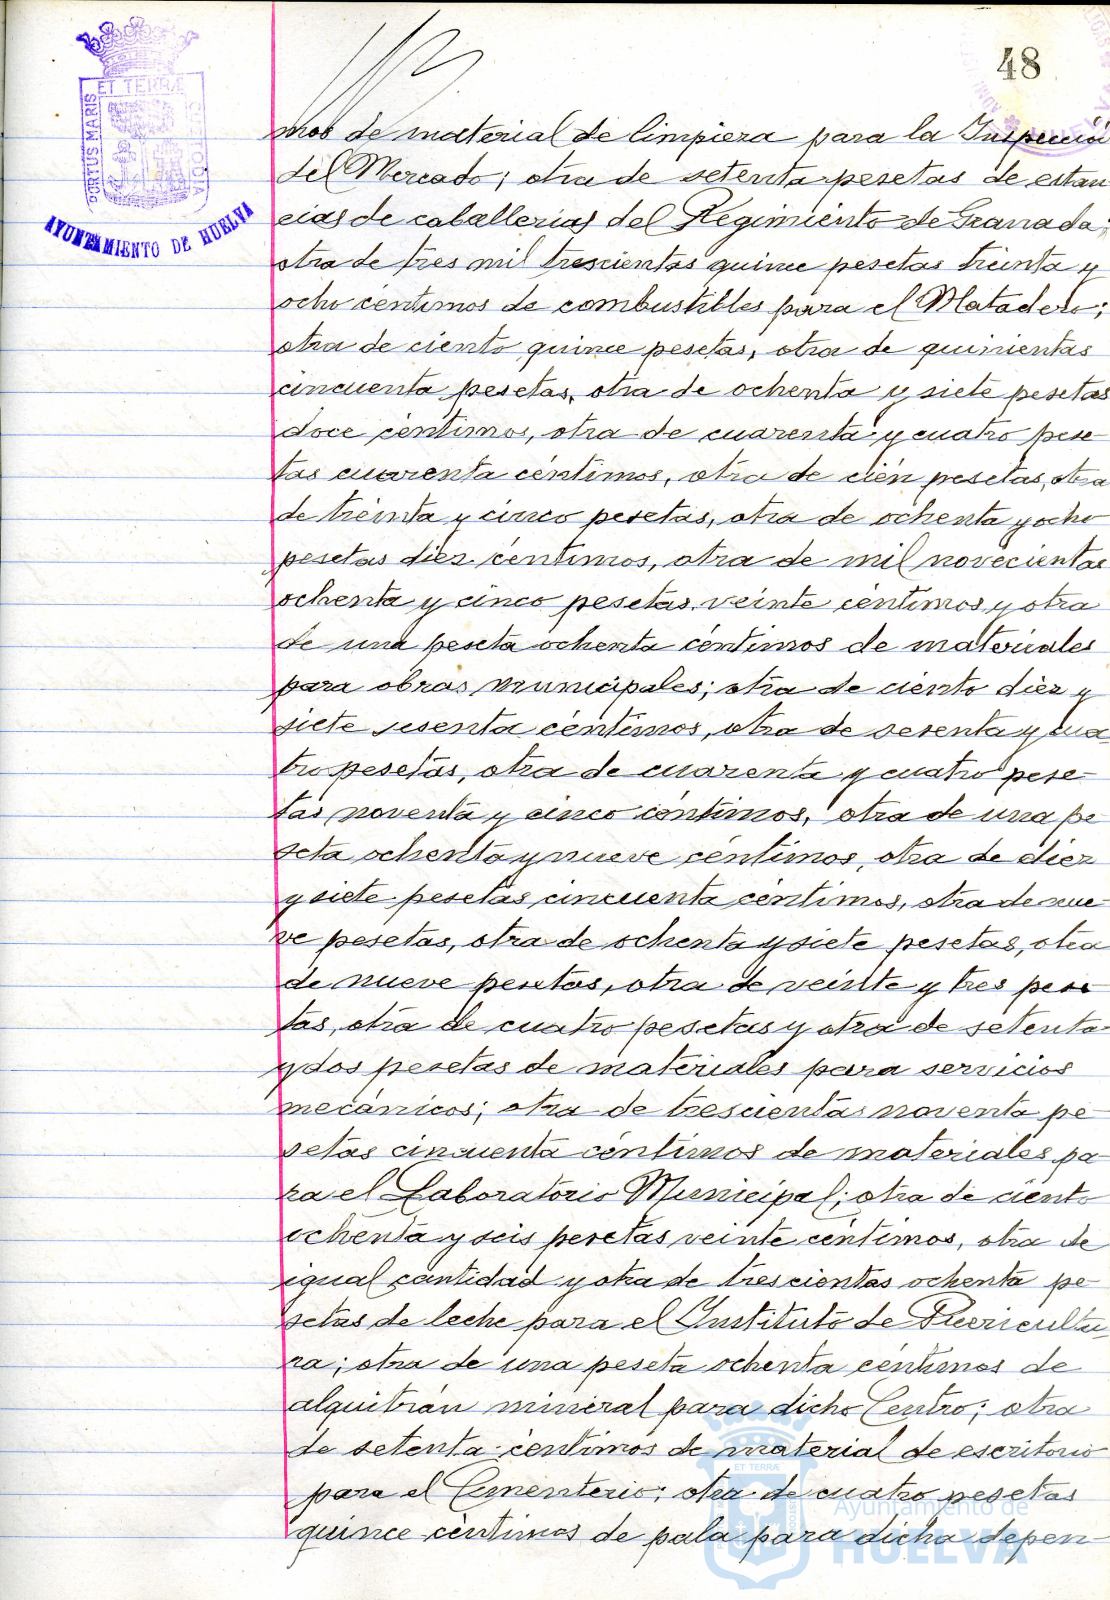 48
PORTUS MARIS
ET TERRÆ
CUSTODIA
AYUNTAMIENTO DE HUELVA
mos de material de limpieza para la Inspección
del Mercado; otra de setenta pesetas de estan
cias de caballerias del Regimiento de Granada;
otra de tres mil trescientas quince pesetas treinta y
ocho céntimos de combustibles para el Matadero;
otra de ciento quince pesetas, otra de quinientas
cincuenta pesetas, otra de ochenta y siete pesetas
doce céntimos, otra de cuarenta y cuatro pese-
tas cuarenta céntimos, otra de cién pesetas, otra
de treinta y cinco pesetas, otra de ochenta y ocho
pesetas diez céntimos, otra de mil novecientas
ochenta y cinco pesetas veinte céntimos y otra
de una peseta ochenta céntimos de materiales
para obras municipales; otra de ciento diez y
siete sesenta céntimos, otra de sesenta y cua-
tro pesetas, otra de cuarenta y cuatro pese-
tas noventa y cinco céntimos, otra de una pe-
seta ochenta y nueve céntimos, otra de diez
y siete pesetas cincuenta céntimos, otra de nue-
ve pesetas, otra de ochenta y siete pesetas, otra
de nueve pesetas, otra de veinte y tres pese
tas, otra de cuatro pesetas y otra de setenta
y dos pesetas de materiales para servicios
mecánicos; otra de trescientas noventa pe-
setas cincuenta céntimos de materiales pa-
ra el Laboratorio Municipal; otra de ciento
ochenta y seis pesetas veinte céntimos, otra de
igual cantidad y otra de trescientas ochenta pe-
setas de leche para el Instituto de Puericultu-
ra; otra de una peseta ochenta céntimos de
alquitrán mineral para dicho Centro; otra
de setenta céntimos de material de escritorio
para el Cementerio; otra de cuatro pesetas
quince céntimos de pala para dicha depen-
ET TERRÆ
Ayuntamiento de
HUELVA